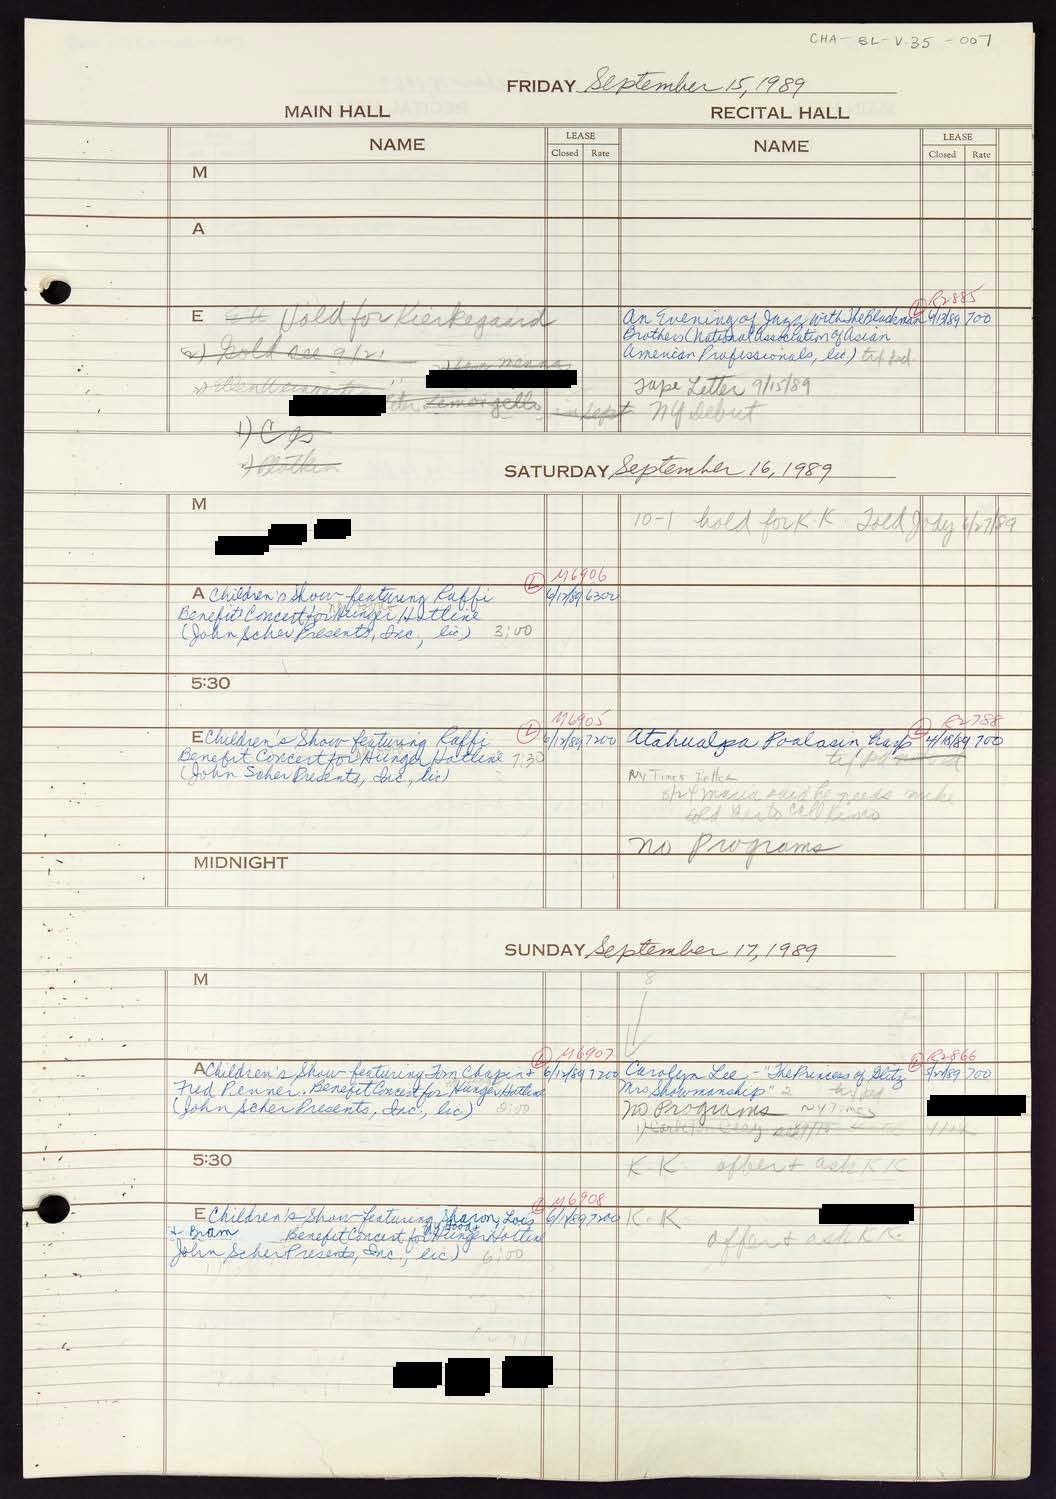 CHA-BL-V.35-007
FRIDAY September 15, 1989
MAIN HALL RECITAL HALL
NAME LEASE Closed Rate NAME LEASE Closed Rate
M
A
R2885
E Hold for Kierkegaard An Evening of Jazz with The Blackman 700
Brothers (National Association of Asian
2) Hold see 9/21 American Professionals, lic)
Tape Letter 9/15/89
in Sept NY debut
1)
SATURDAY September 16, 1989
M
10-1 hold for K.K. Told Jody 6/27/89
L M6906
A Children's Show featuring Raffi 6/12/89 6300
Benefit Concert for Hunger Hotline
(John Scher Presents, Inc., lic) 3:00
5:30
L M6905 L R2788
E Children's Show featuring Raffi 6/12/89 7200 Atahualpa Poalasin harp 4/18/89 700
Benefit Concert for Hunger Hotline 7:30
(John Scher Presents, Inc, lic)
NY Times Letter
no Programs
MIDNIGHT
SUNDAY September 17, 1989
M
8
L M6907 L R2866
A Children's Show featuring Tom Chapin + 6/12/89 7200 Carolyn Lee - "The Princess of Glitz 700
Fred Penner. Benefit Concert for Hunger Hotline Mrs Showmanship" 2
(John Scher Presents, Inc., lic) no Programs NY Times
5:30
K.K. offer + ask KK
L M6908
E Children's Show featuring Sharon, Lois 7200 K.K.
+ Bram Benefit Concert for Hunger Hotline offer + ask KK
John Scher Presents, Inc., lic) 6:00